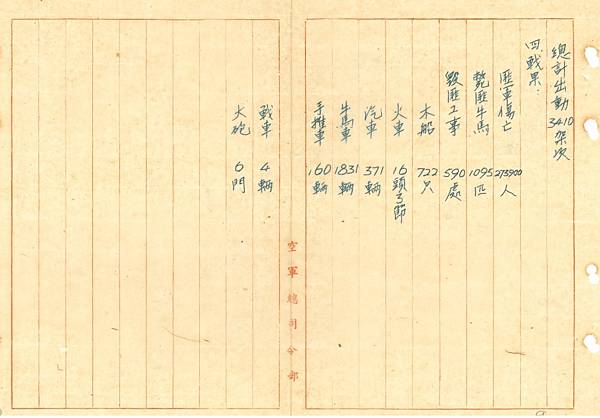 總計出動3410架次
四、戰果：
匪軍傷亡 273900人
斃匪牛馬 1095匹
毀匪工事 590處
木船 722只
火車 16頭3節
汽車 371輛
牛馬車 1831輛
手推車 160輛
空軍總司令部
戰車 4輛
大砲 6門